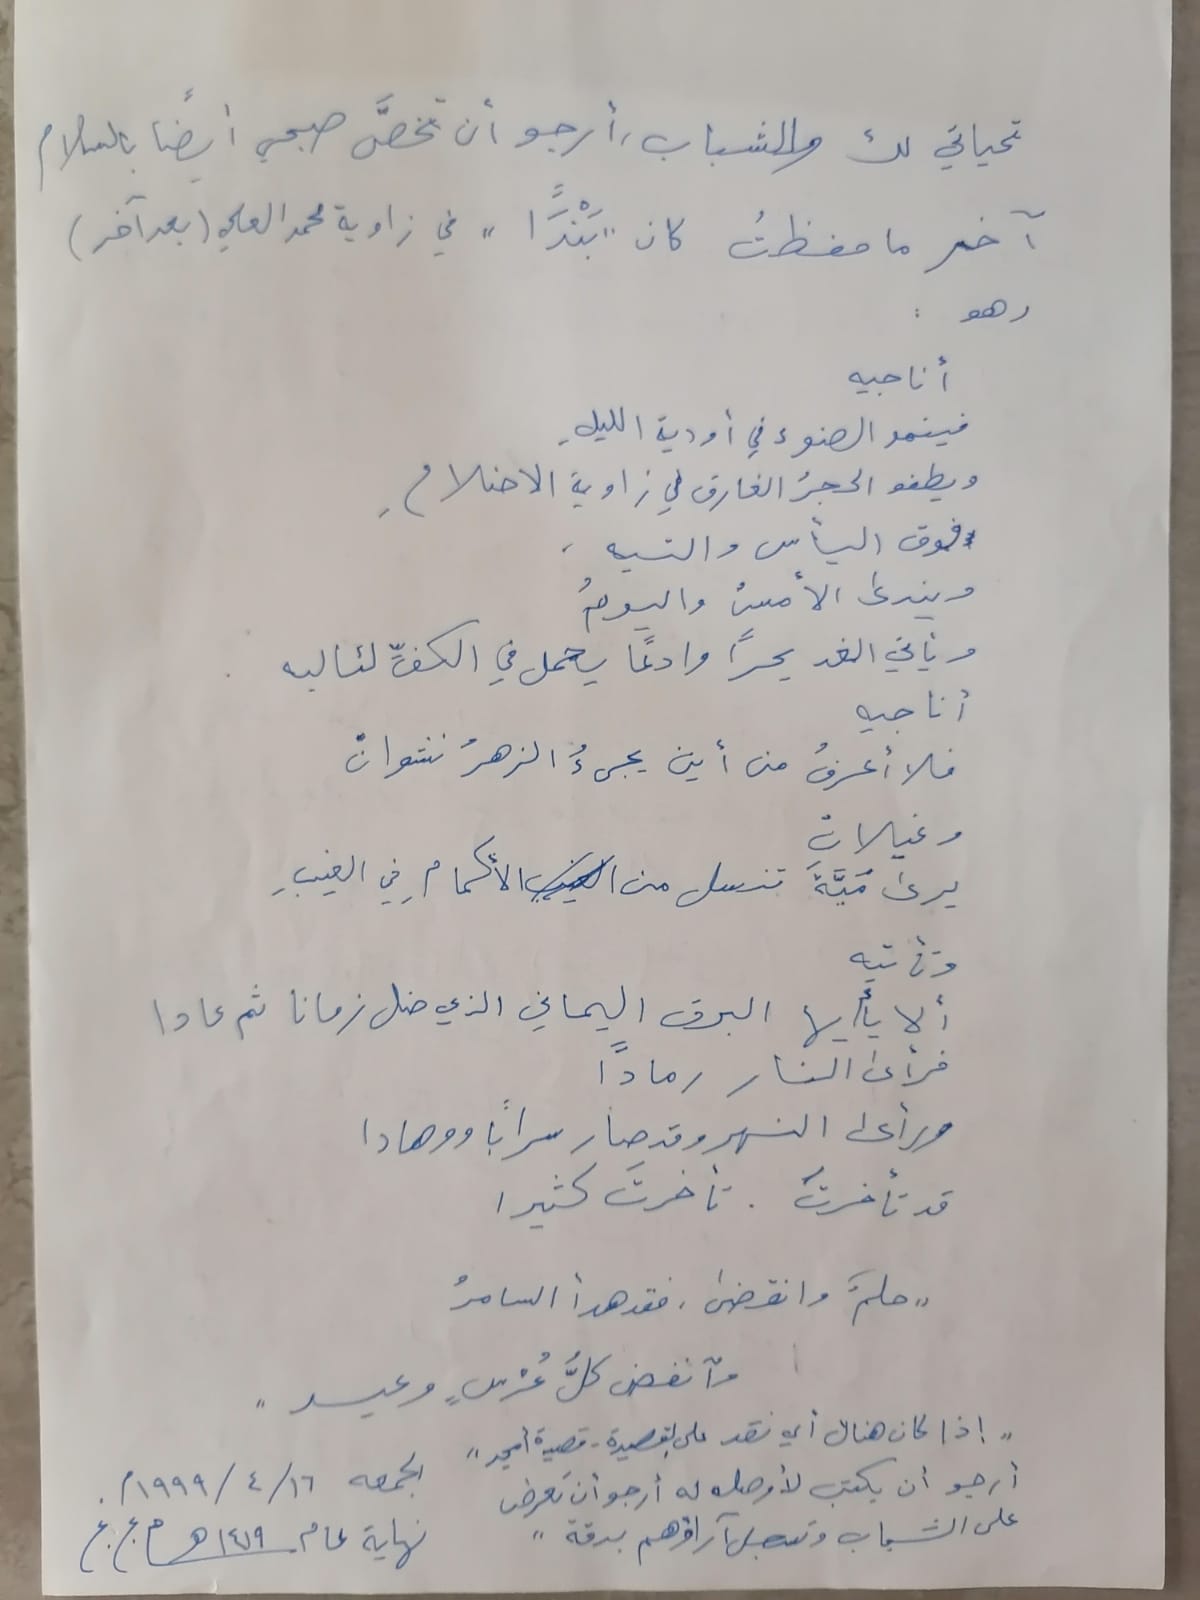 تحياتي لك وللشباب، أرجو أن تخصَّ صبحي أيضًا بالسلام
آخر ما حفظتُ كان "بَنْدًا" في زاوية محمد العلي (بعد آخر)
وهو :
أناجيه
فينمو الضوء في أودية الليلِ
ويطفو الحجرُ الغارق في زاوية الاحلامِ
فوق اليأس والتيه ،
ويندى الأمسُ واليومُ
ويأتي الغد بحرًا وادعًا يحمل في الكفِّ لئاليه .
أناجيه
فلا أعرفُ من أين يجيءُ الزهرُ نشوانْ
وغيلانْ
يرى مَيَّةَ تنسل من الأكمامِ في الغيبِ
وتأتيه
ألا يا أيها البرق اليماني الذي ضل زمانا ثم عادا
فرأى النار رمادًا
ورأى النهر وقد صار سرابًا ووهادا
قد تأخرتَ . تأخرتَ كثيرا
"حلمٌ وانقضى ، فقد هدأ السامرُ
وآنفض كلُّ عُرْسٍ وعيد "
" إذا كان هناك أي نقد على القصيدة - قصيدة أمجد "
أرجو أن يكتب لأوصله له أرجو أن تعرض
على الشباب وتسجل آراؤهم بدقة "
الجمعه ١٦ / ٤ / ١٩٩٩م.
نهاية عام ١٤١٩هـ م.ع.ع